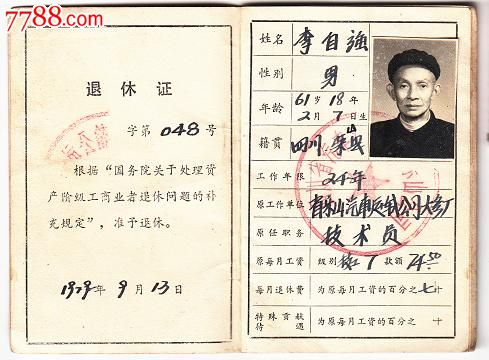 7788.com
退休证
字第048号
根据“国务院关于处理资
产阶级工商业者退休问题的补
充规定”，准予退休。
1979年9月13日
姓名 李自强
性别 男
年龄 61岁 18年
2月7日生
籍贯 四川 荣县
工作年限 24年
原工作单位
原任职务 技术员
原每月工资 级别 款额 74.50
每月退休费 为原每月工资的百分之七十
特殊贡献
待遇 为原每月工资的百分之 十